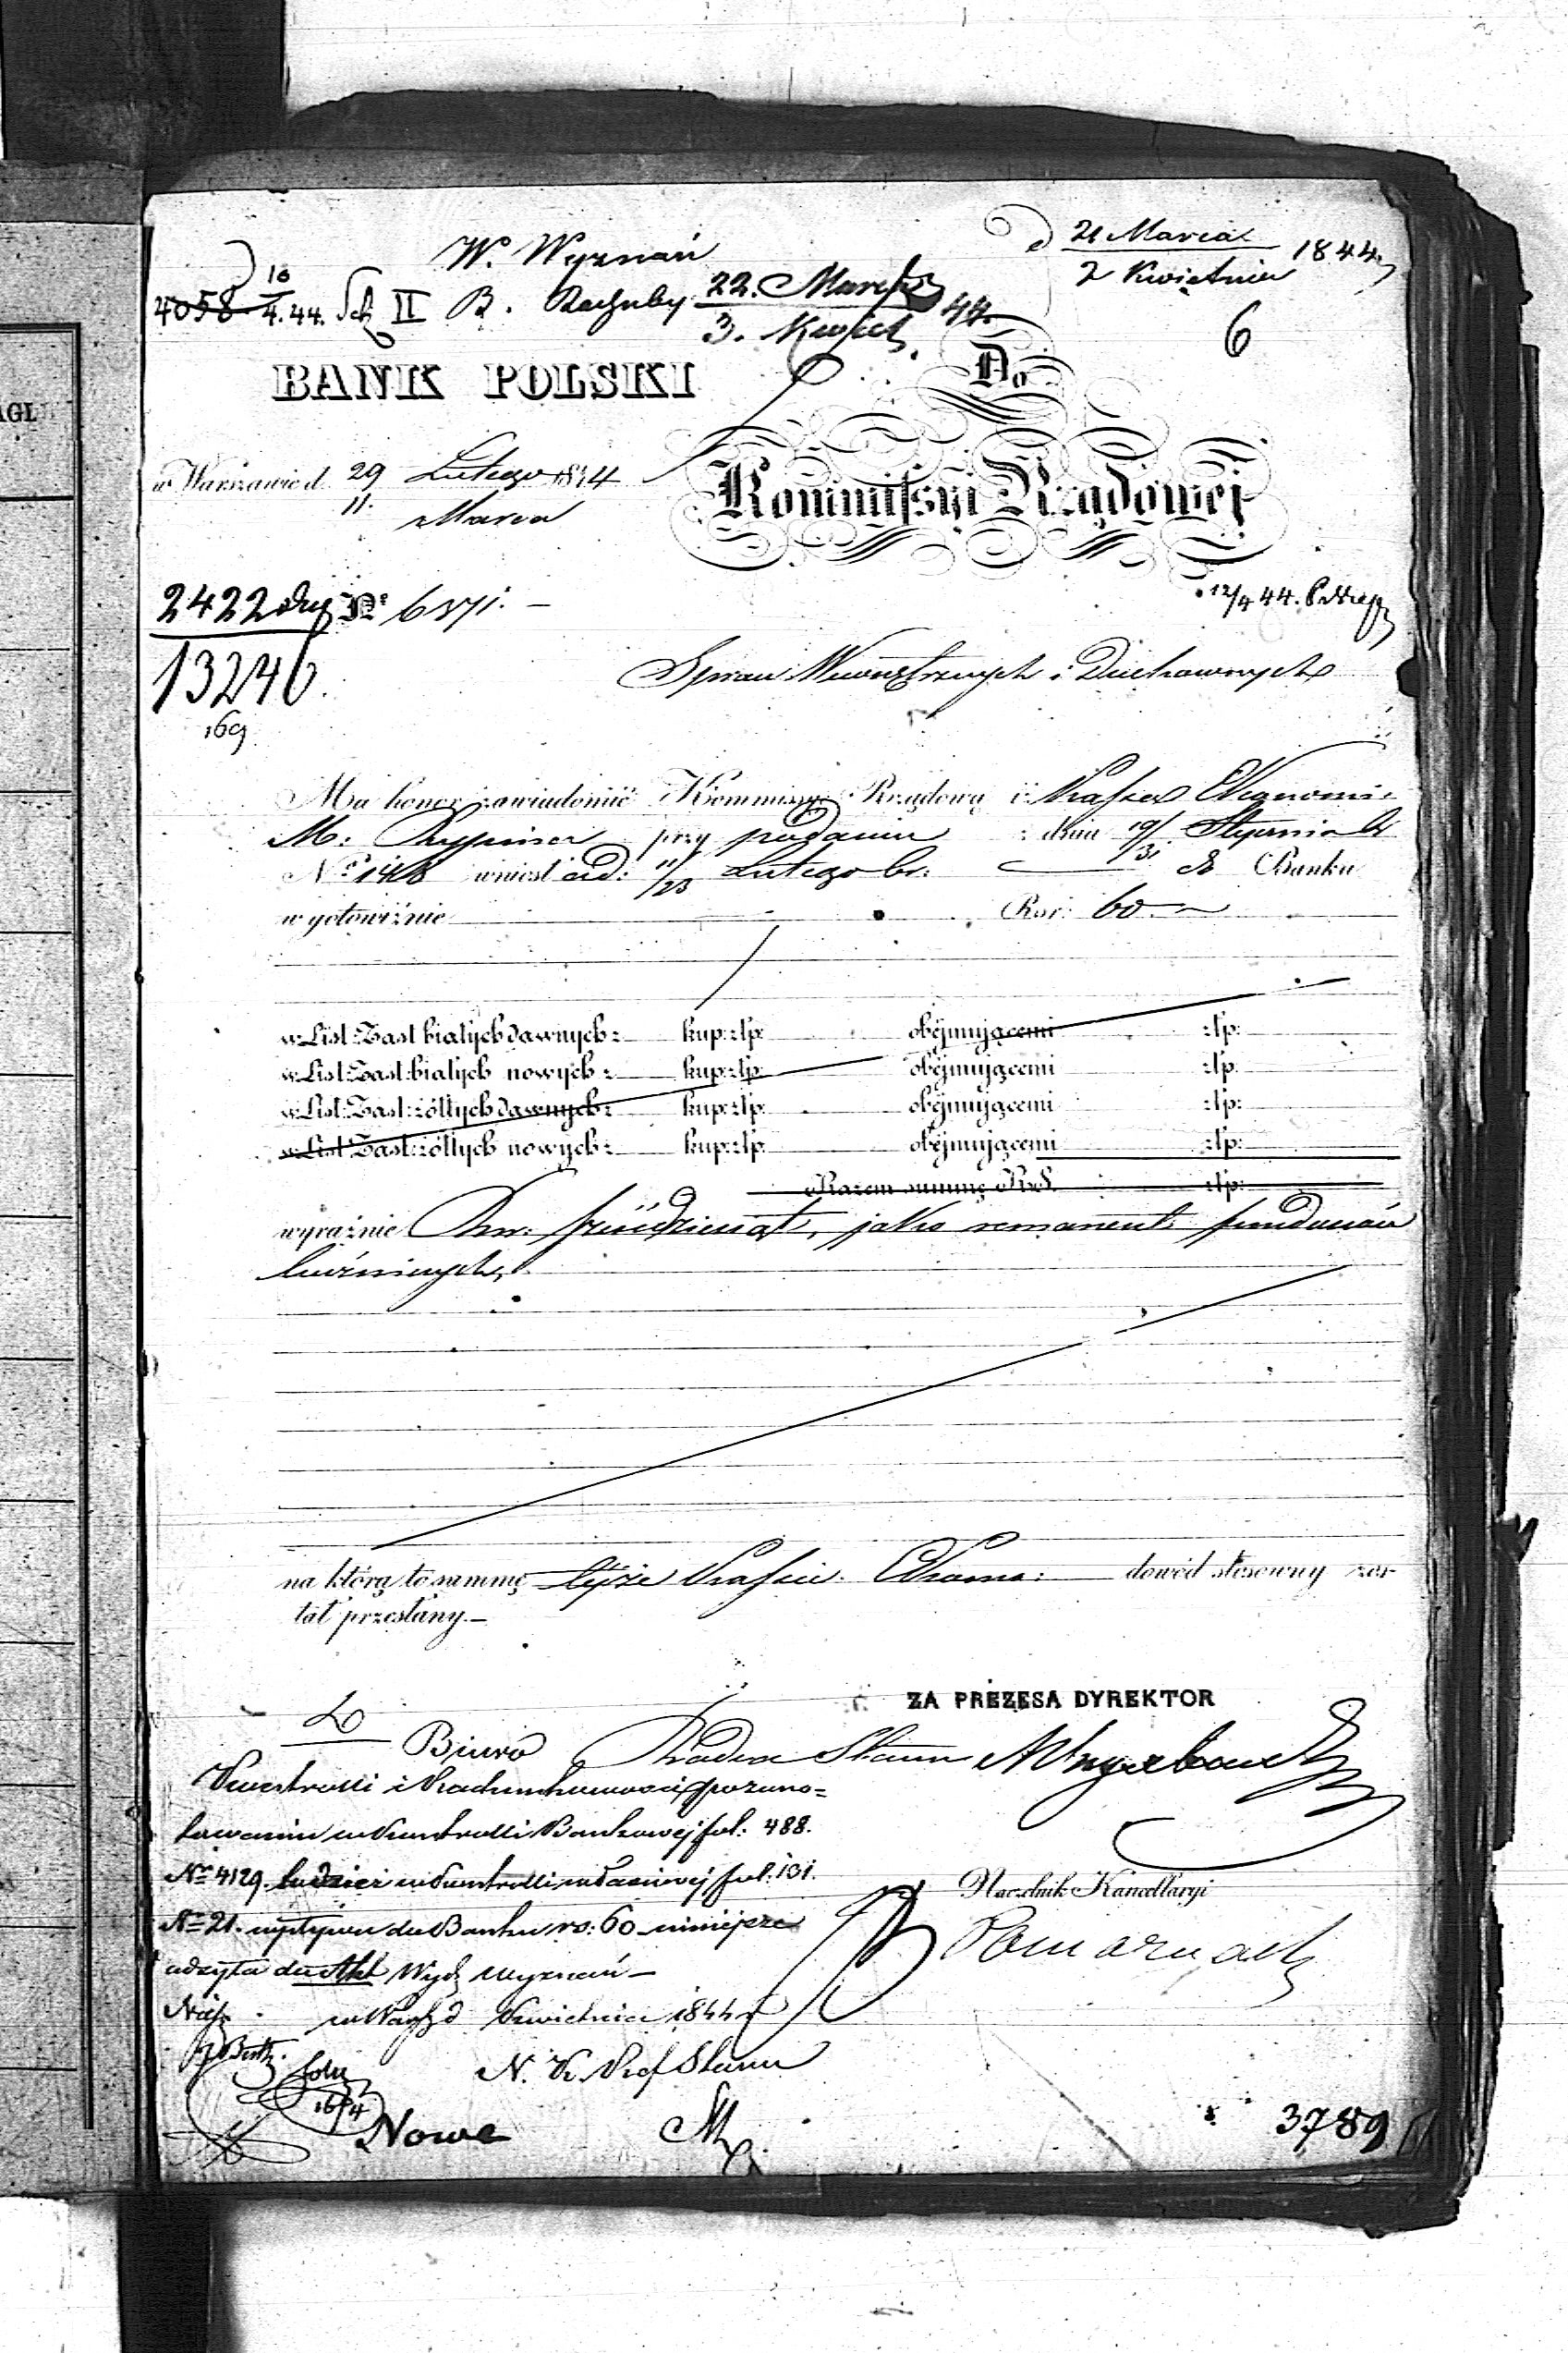 W. Wyznań
d 21 Marca 1844
2 Kwietnia
4058 10/4. 44. II B. Rachuby 22. Marca 44.
3. Kwiet
6
BANK POLSKI
Do
w Warszawie d. 29 Lutego 1844
11. Marca
Kommissyi Rządowej
12/4 44.
2422 Nr 6371. –
13246.
169
Spraw Wewnętrznych i Duchownych
Ma honor zawiadomić Kommissyę Rządową iż Kassa Ekonomi:
M: przy podaniu z dnia 19/31 Stycznia
No 148 wniosła d: 11/23 Lutego br: do Banku
w gotowiźnie Rsr: 60 –
w List: Zast białych dawnych z kup: złp: obejmującemi złp:
w List: Zast: białych nowych z kup: złp: obejmującemi złp:
w List: Zast: żółtych dawnych z kup: złp: obejmującemi złp:
w List: Zast: żółtych nowych z kup: złp: obejmującemi złp:
Razem summę RS. złp:
wyraźnie Rsr: sześćdziesiąt, jako remanent funduszów
bóżnicznych,
na którą to summę tejże Kassie Ekonom: dowód stosowny zos-
tał przesłany. –
ZA PREZESA DYREKTOR
Radca Stanu
Biuro
Kontrolli i Rachunkowości po zano-
towaniu w Kontrolli Bankowej fol: 488.
No 4129. tudzież w Kontrolli właściwej fol: 131.
No 21. wpływu do Banku rs: 60 niniejsza
odezwa do Akt Wydz Wyznań –
Naczelnik Kancellaryi
w Warsz d Kwietnia 1844 r
N. K. Stanu
16/4
Nowe
3789